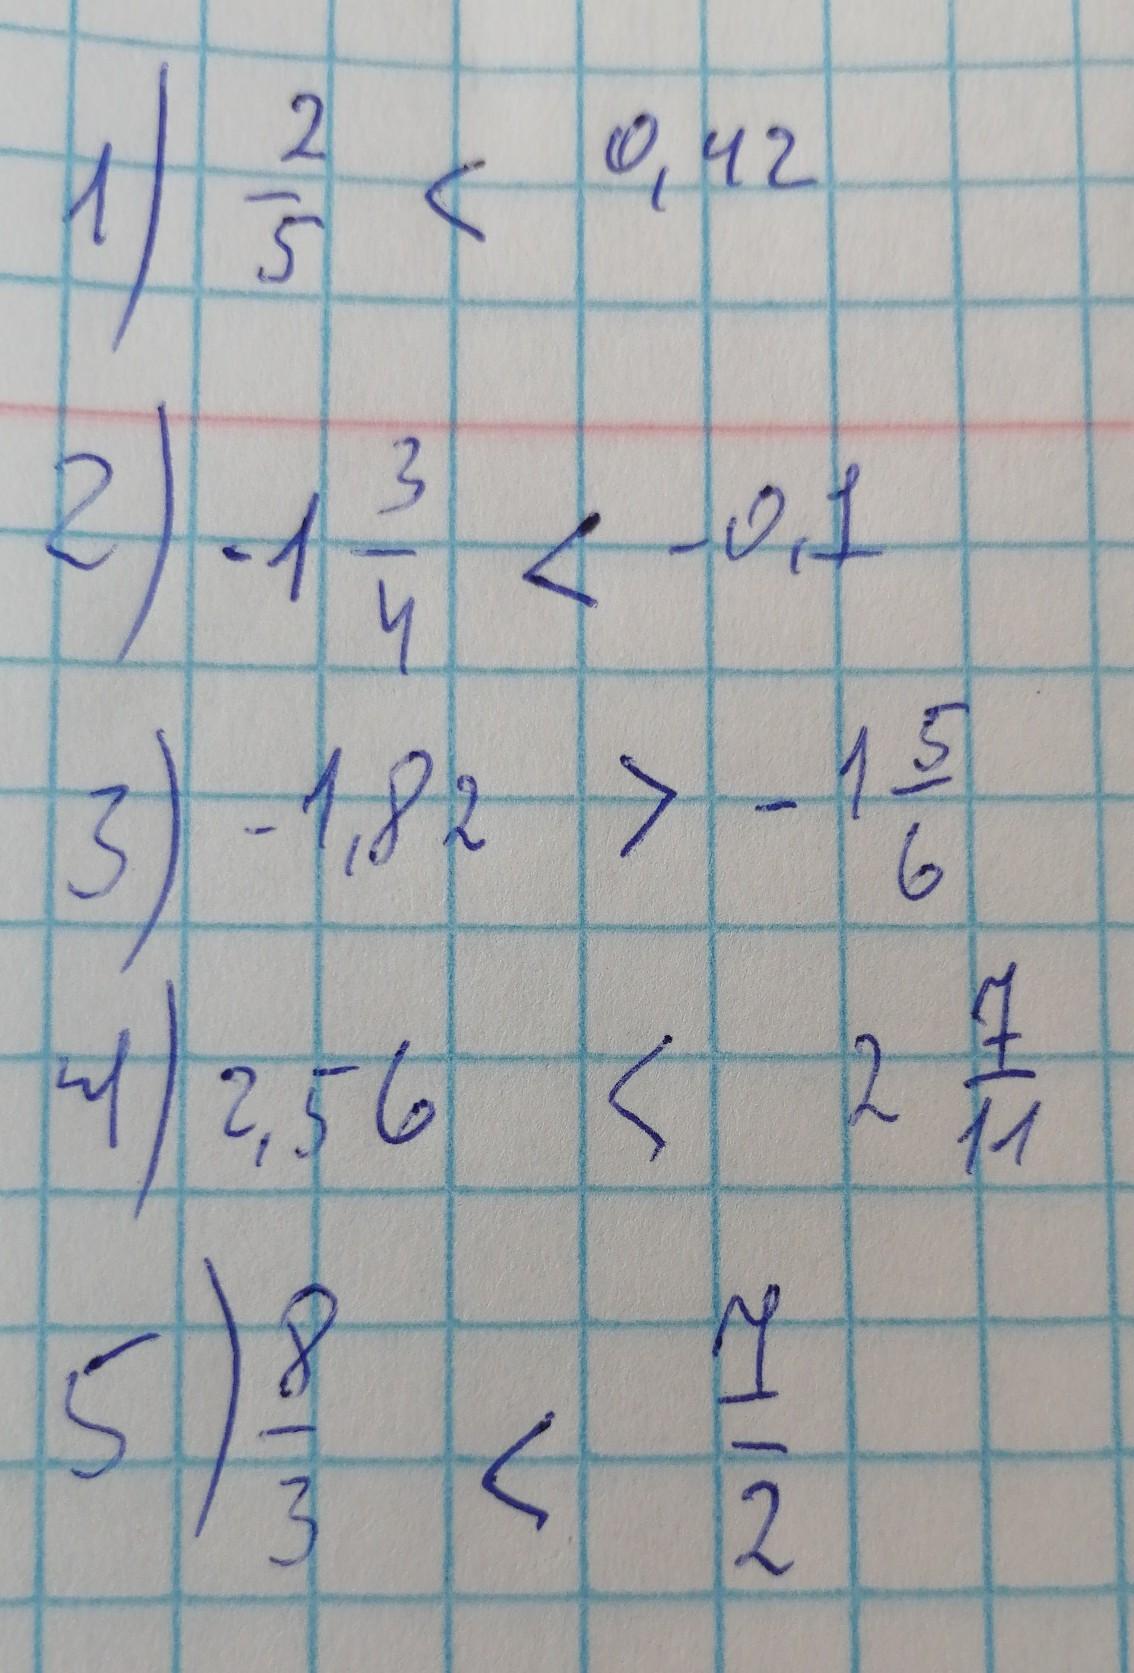 1) 2/5 < 0,42
2) -1 3/4 < -0,1
3) -1,82 > -1 5/6
4) 2,56 < 2 7/11
5) 8/3 < 7/2